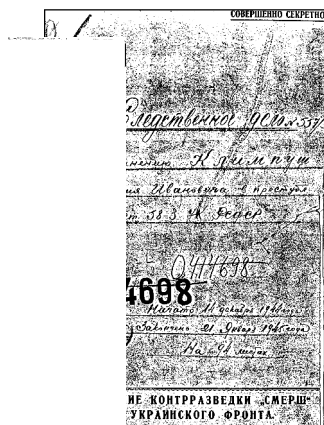 СОВЕРШЕННО СЕКРЕТНО
Следственное дело № 5557
нению Климпуш
ия Ивановича в преступл.
ст 58-3 УК РСФСР
0414698
4698
Начато 14 декабря 1944 года
Закончено 21 Января 1945 года
На 94 листах
ИЕ КОНТРРАЗВЕДКИ „СМЕРШ"
УКРАИНСКОГО ФРОНТА.